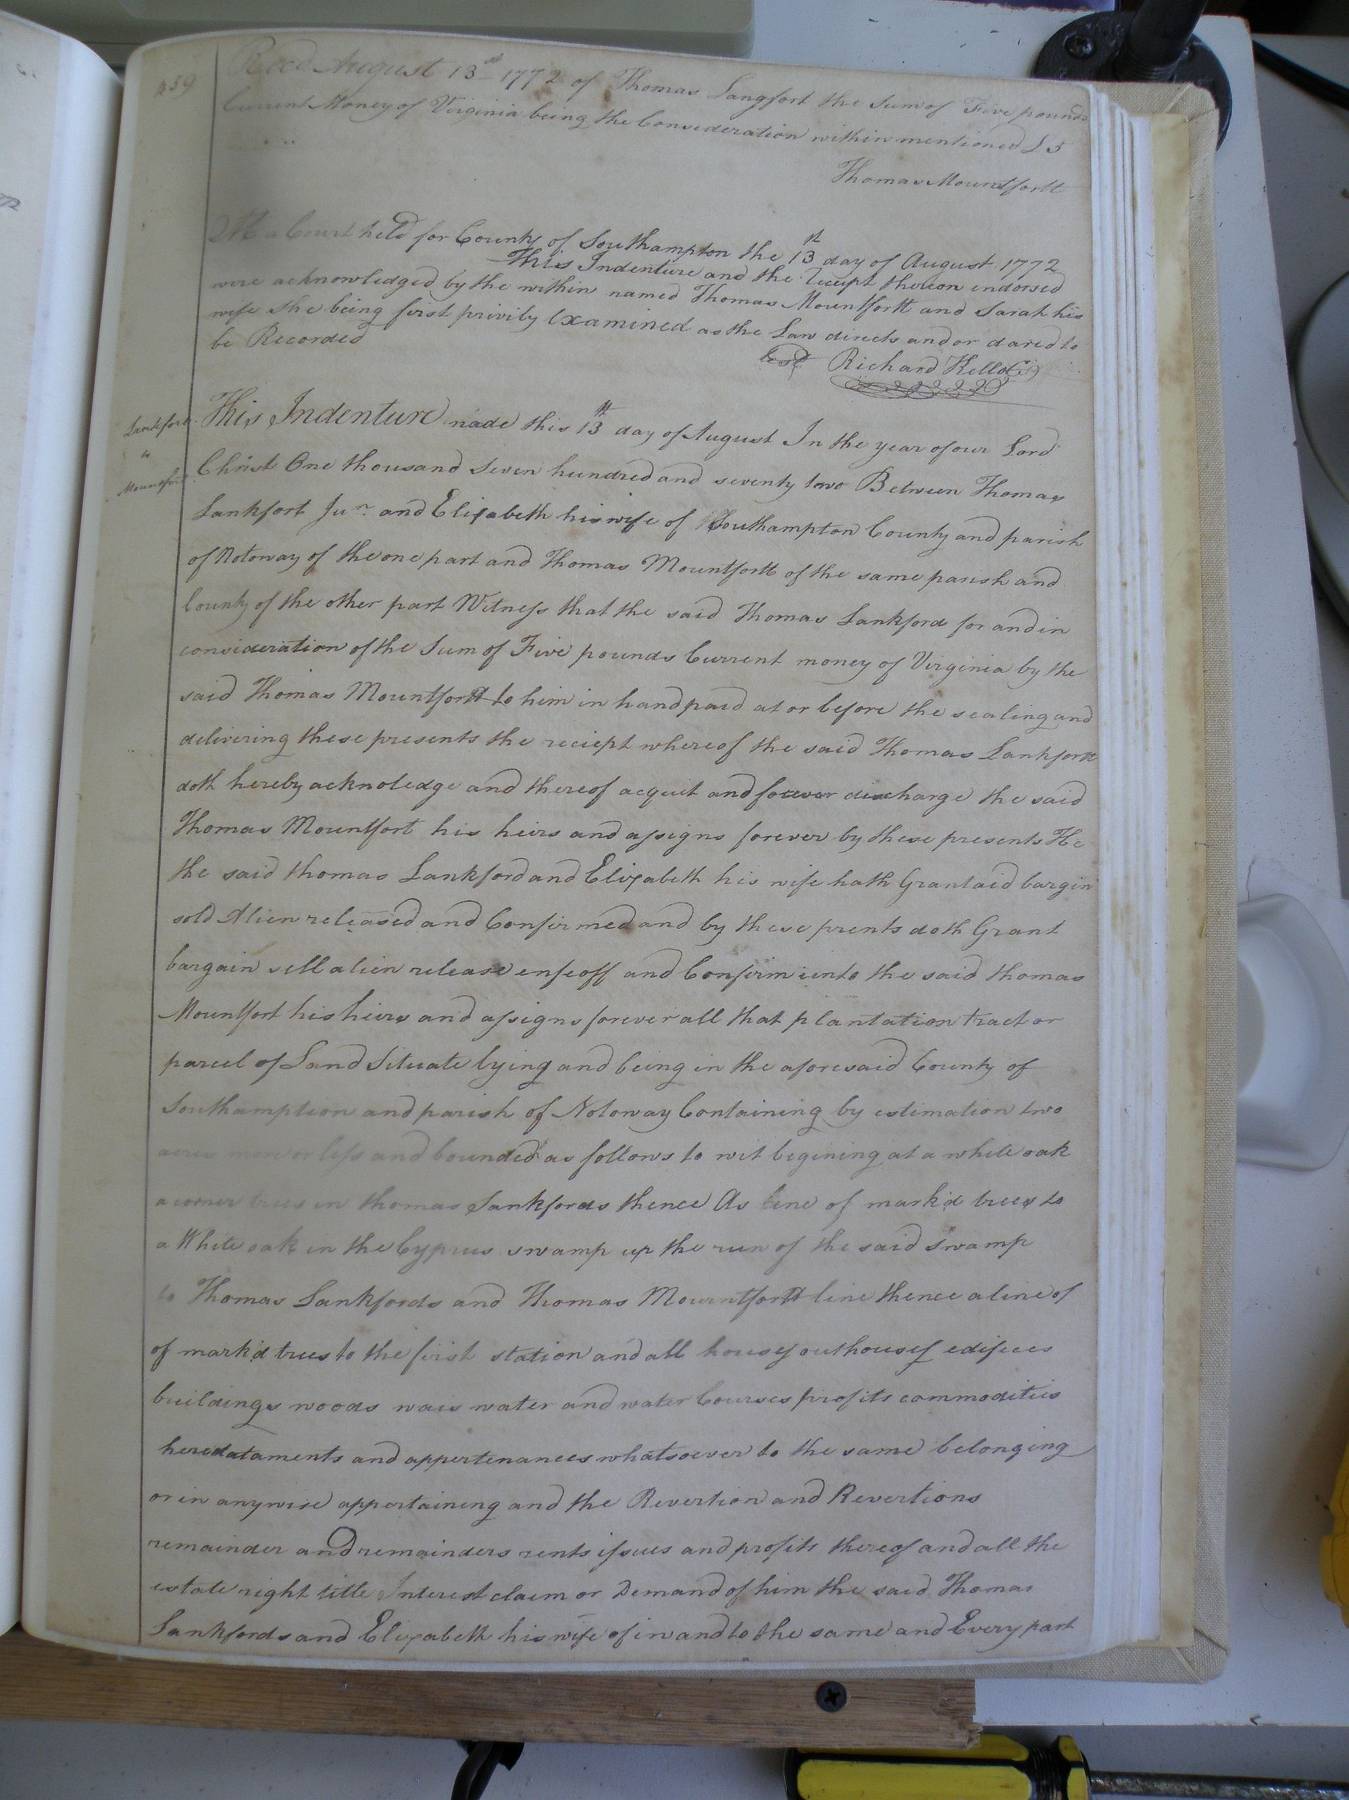 459
Recd August 13th 1772 of Thomas Langfort the Sum of Five pounds
Current Money of Virginia being the Consideration within mentioned £5
Thomas Mountfortt
At a Court held for County of Southampton the 13th day of August 1772
This Indenture and the receipt thereon endorsed
were acknowledged by the within named Thomas Mountfortt and Sarah his
wife she being first privily Examined as the Law directs and or dared to
be Recorded
Test Richard Kello
Lankfort
to
Mountfort
This Indenture made this 13th day of August In the year of our Lord
Christ One thousand Seven hundred and seventy two Between Thomas
Lankfort Junr. and Elizabeth his wife of Southampton County and parish
of Notoway of the one part and Thomas Mountfortt of the same parish and
County of the other part Witness that the said Thomas Lankford for and in
consideration of the Sum of Five pounds Current money of Virginia by the
said Thomas Mountfortt to him in hand paid at or before the sealing and
delivering these presents the reciept whereof the said Thomas Lankfortt
doth hereby acknoledge and thereof acquit and forever discharge the said
Thomas Mountfort his heirs and assigns forever by these presents He
the said thomas Lankford and Elizabeth his wife hath Grantaid bargin
sold Alien released and Confirmed and by these prents doth Grant
bargain sell alien release enfeoff and Confirm unto the said thomas
Mountfort his heirs and assigns forever all that plantation tract or
parcel of Land Situate lying and being in the aforesaid County of
Southamption and parish of Notoway Containing by estimation two
acres more or less and bounded as follows to wit begining at a white oak
a corner trees in thomas Lankfords thence As line of markd trees to
a White oak in the Cyprus swamp up the run of the said swamp
to Thomas Lankfords and Thomas Mountfortt line thence a line of
of markd trees to the first station and all houses outhouses edifices
buildings woods wais water and water Courses profits commodities
heredataments and appertenances whatsoever to the same belonging
or in anywise appertaining and the Revertion and Revertions
remainder and remainders rents issues and profits thereof and all the
estate right title Interest claim or Demand of him the said Thomas
Lankfords and Elizabeth his wife of in and to the same and Every part